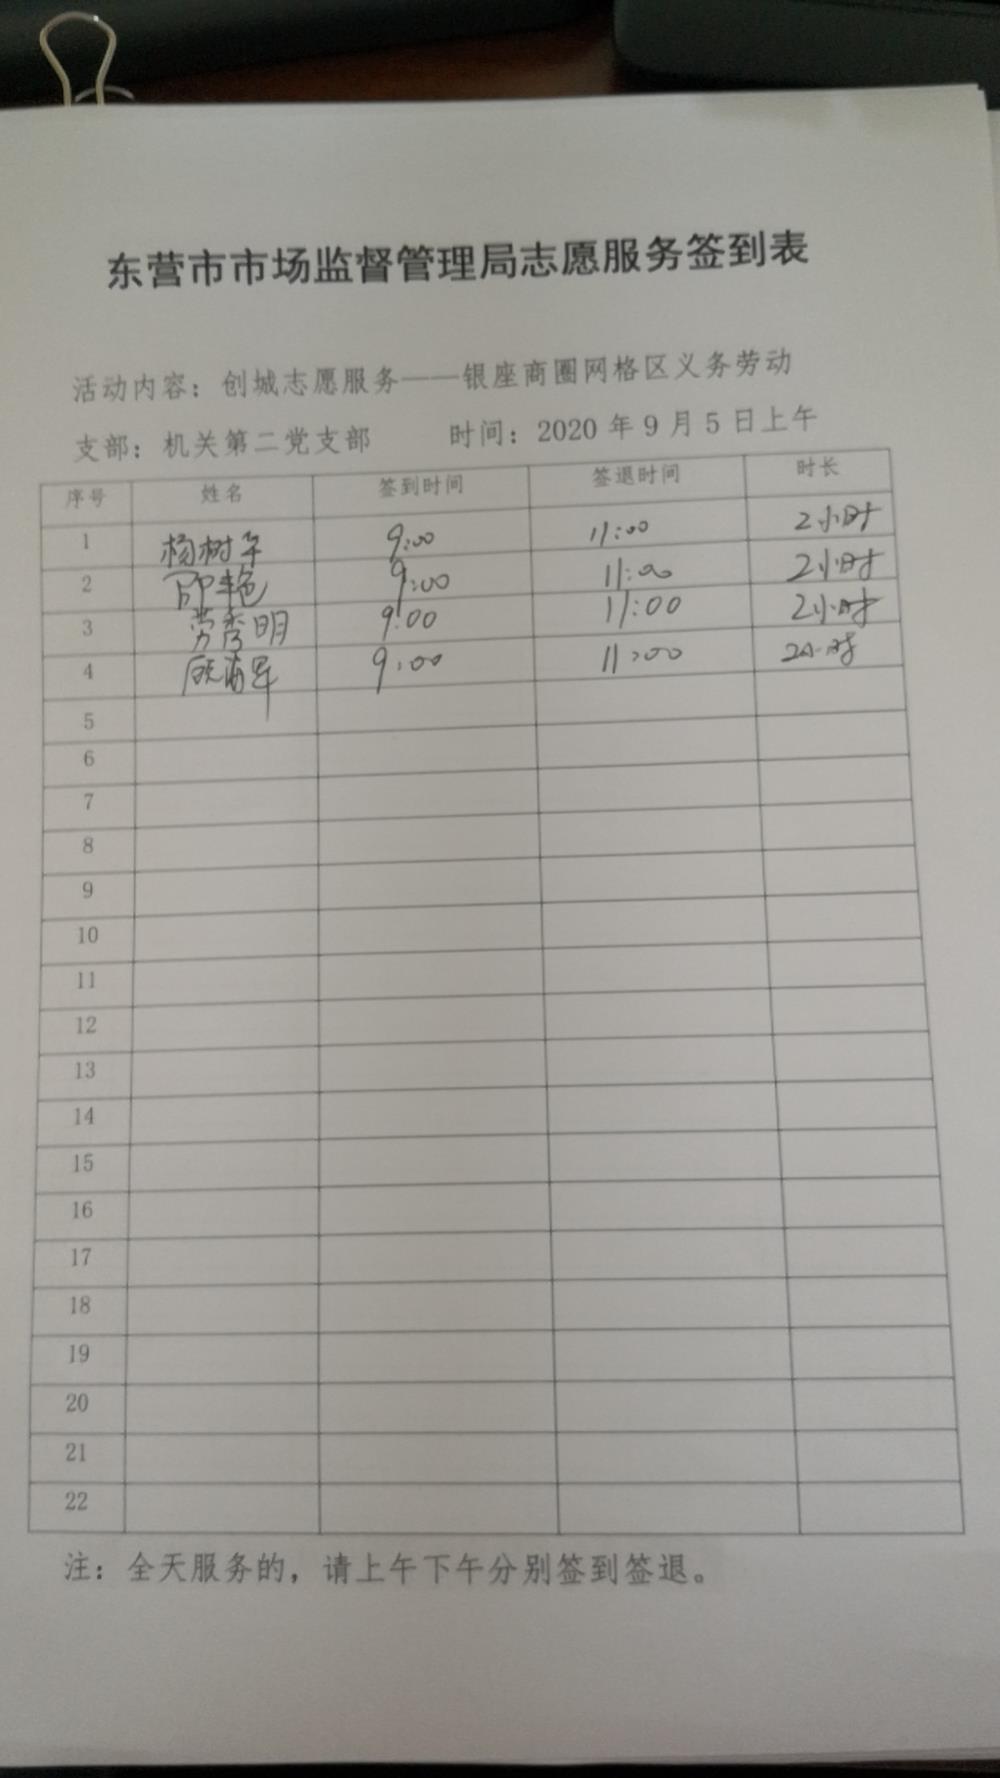 东营市市场监督管理局志愿服务签到表
活动内容：创城志愿服务——银座商圈网格区义务劳动
支部：机关第二党支部 时间：2020年9月5日上午
序号 姓名 签到时间 签退时间 时长
1 杨树 9:00 11:00 2小时
2 艳 9:00 11:00 2小时
3 劳秀明 9:00 11:00 2小时
4 海军 9:00 11:00 2小时
5
6
7
8
9
10
11
12
13
14
15
16
17
18
19
20
21
22
注：全天服务的，请上午下午分别签到签退。